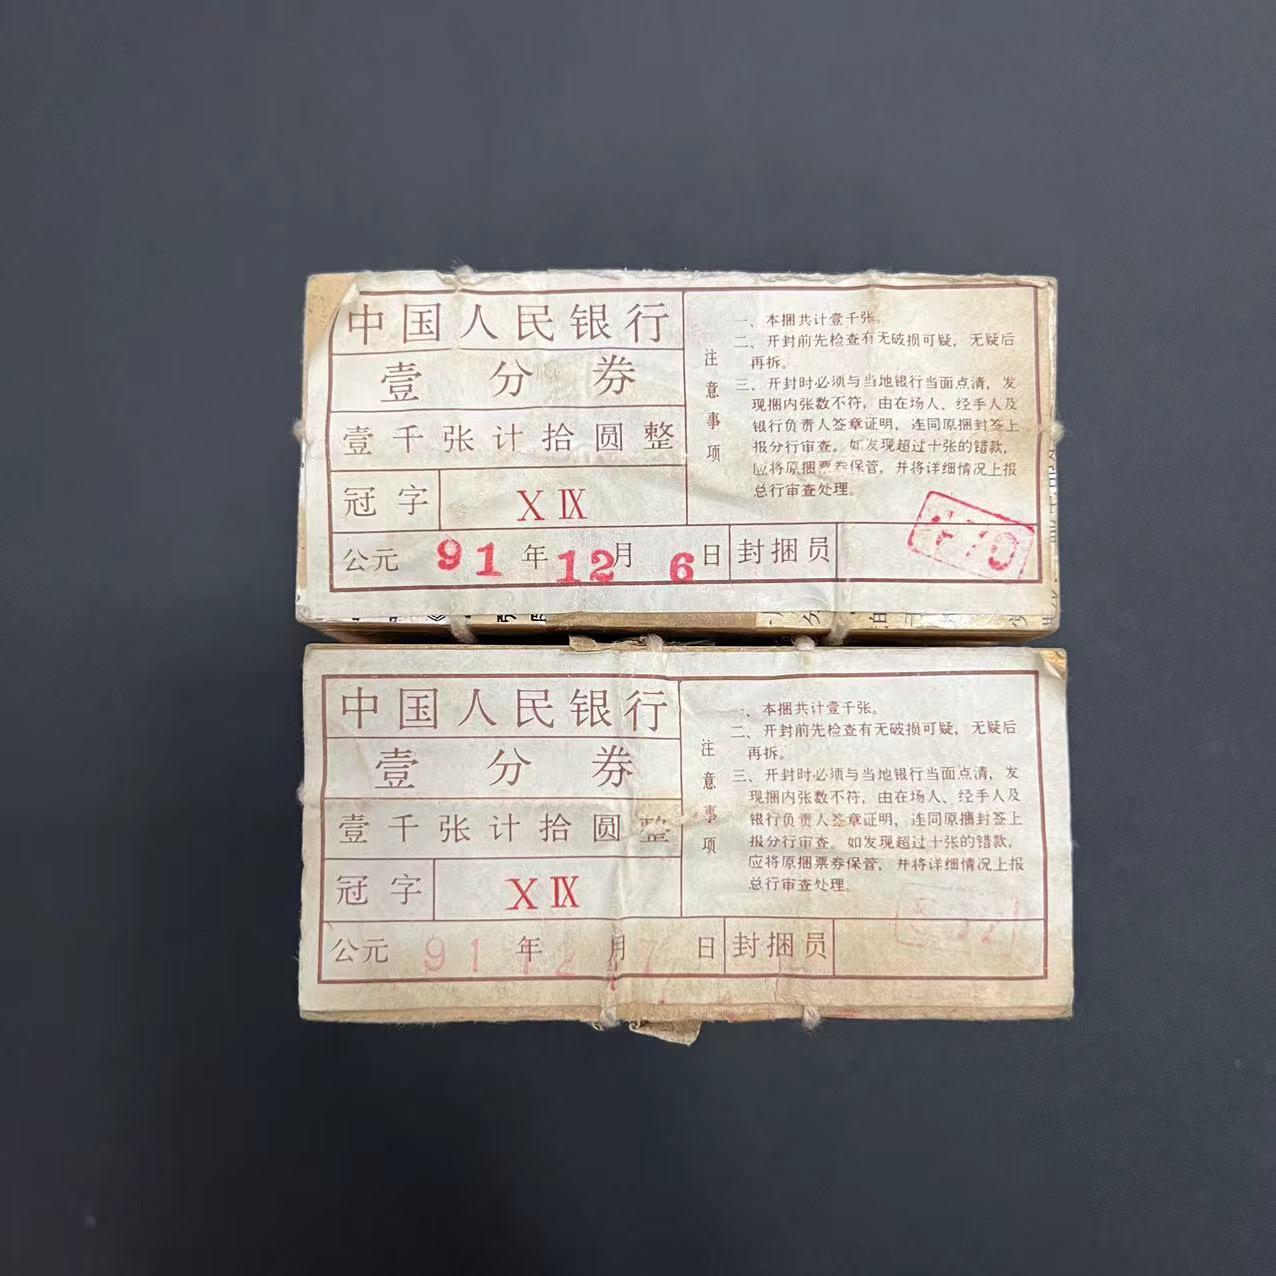 中国人民银行
壹分券
壹千张计拾圆整
冠字 X IX
公元 91 年 12 月 6 日 封捆员
注意事项
一、本捆共计壹千张。
二、开封前先检查有无破损可疑，无疑后
再拆。
三、开封时必须与当地银行当面点清，发
现捆内张数不符，由在场人、经手人及
银行负责人签章证明，连同原捆封签上
报分行审查。如发现超过十张的错款，
应将原捆票券保管，并将详细情况上报
总行审查处理。
中国人民银行
壹分券
壹千张计拾圆整
冠字 X IX
公元 91 年 12 月 7 日 封捆员
注意事项
一、本捆共计壹千张。
二、开封前先检查有无破损可疑，无疑后
再拆。
三、开封时必须与当地银行当面点清，发
现捆内张数不符，由在场人、经手人及
银行负责人签章证明，连同原捆封签上
报分行审查。如发现超过十张的错款，
应将原捆票券保管，并将详细情况上报
总行审查处理。